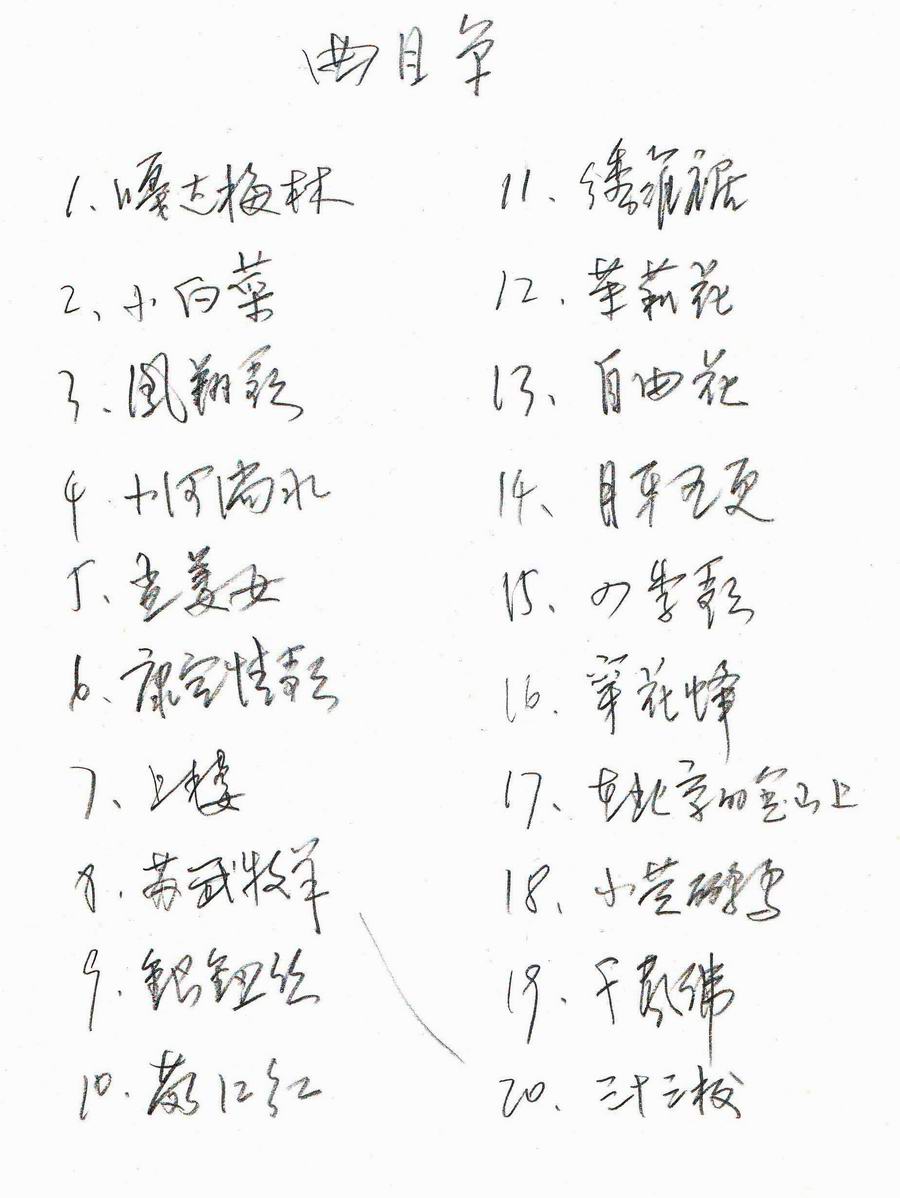 曲目单
1、嘎达梅林
2、小白菜
3、凤翔歌
4、小河淌水
5、孟姜女
6、康定情歌
7、上楼
8、苏武牧羊
9、银钮丝
10、满江红
11、绣罗裙
12、茉莉花
13、自由花
14、月牙五更
15、四季歌
16、穿花蜂
17、在北京的金山上
18、小黄鹂鸟
19、千声佛
20、三十三板